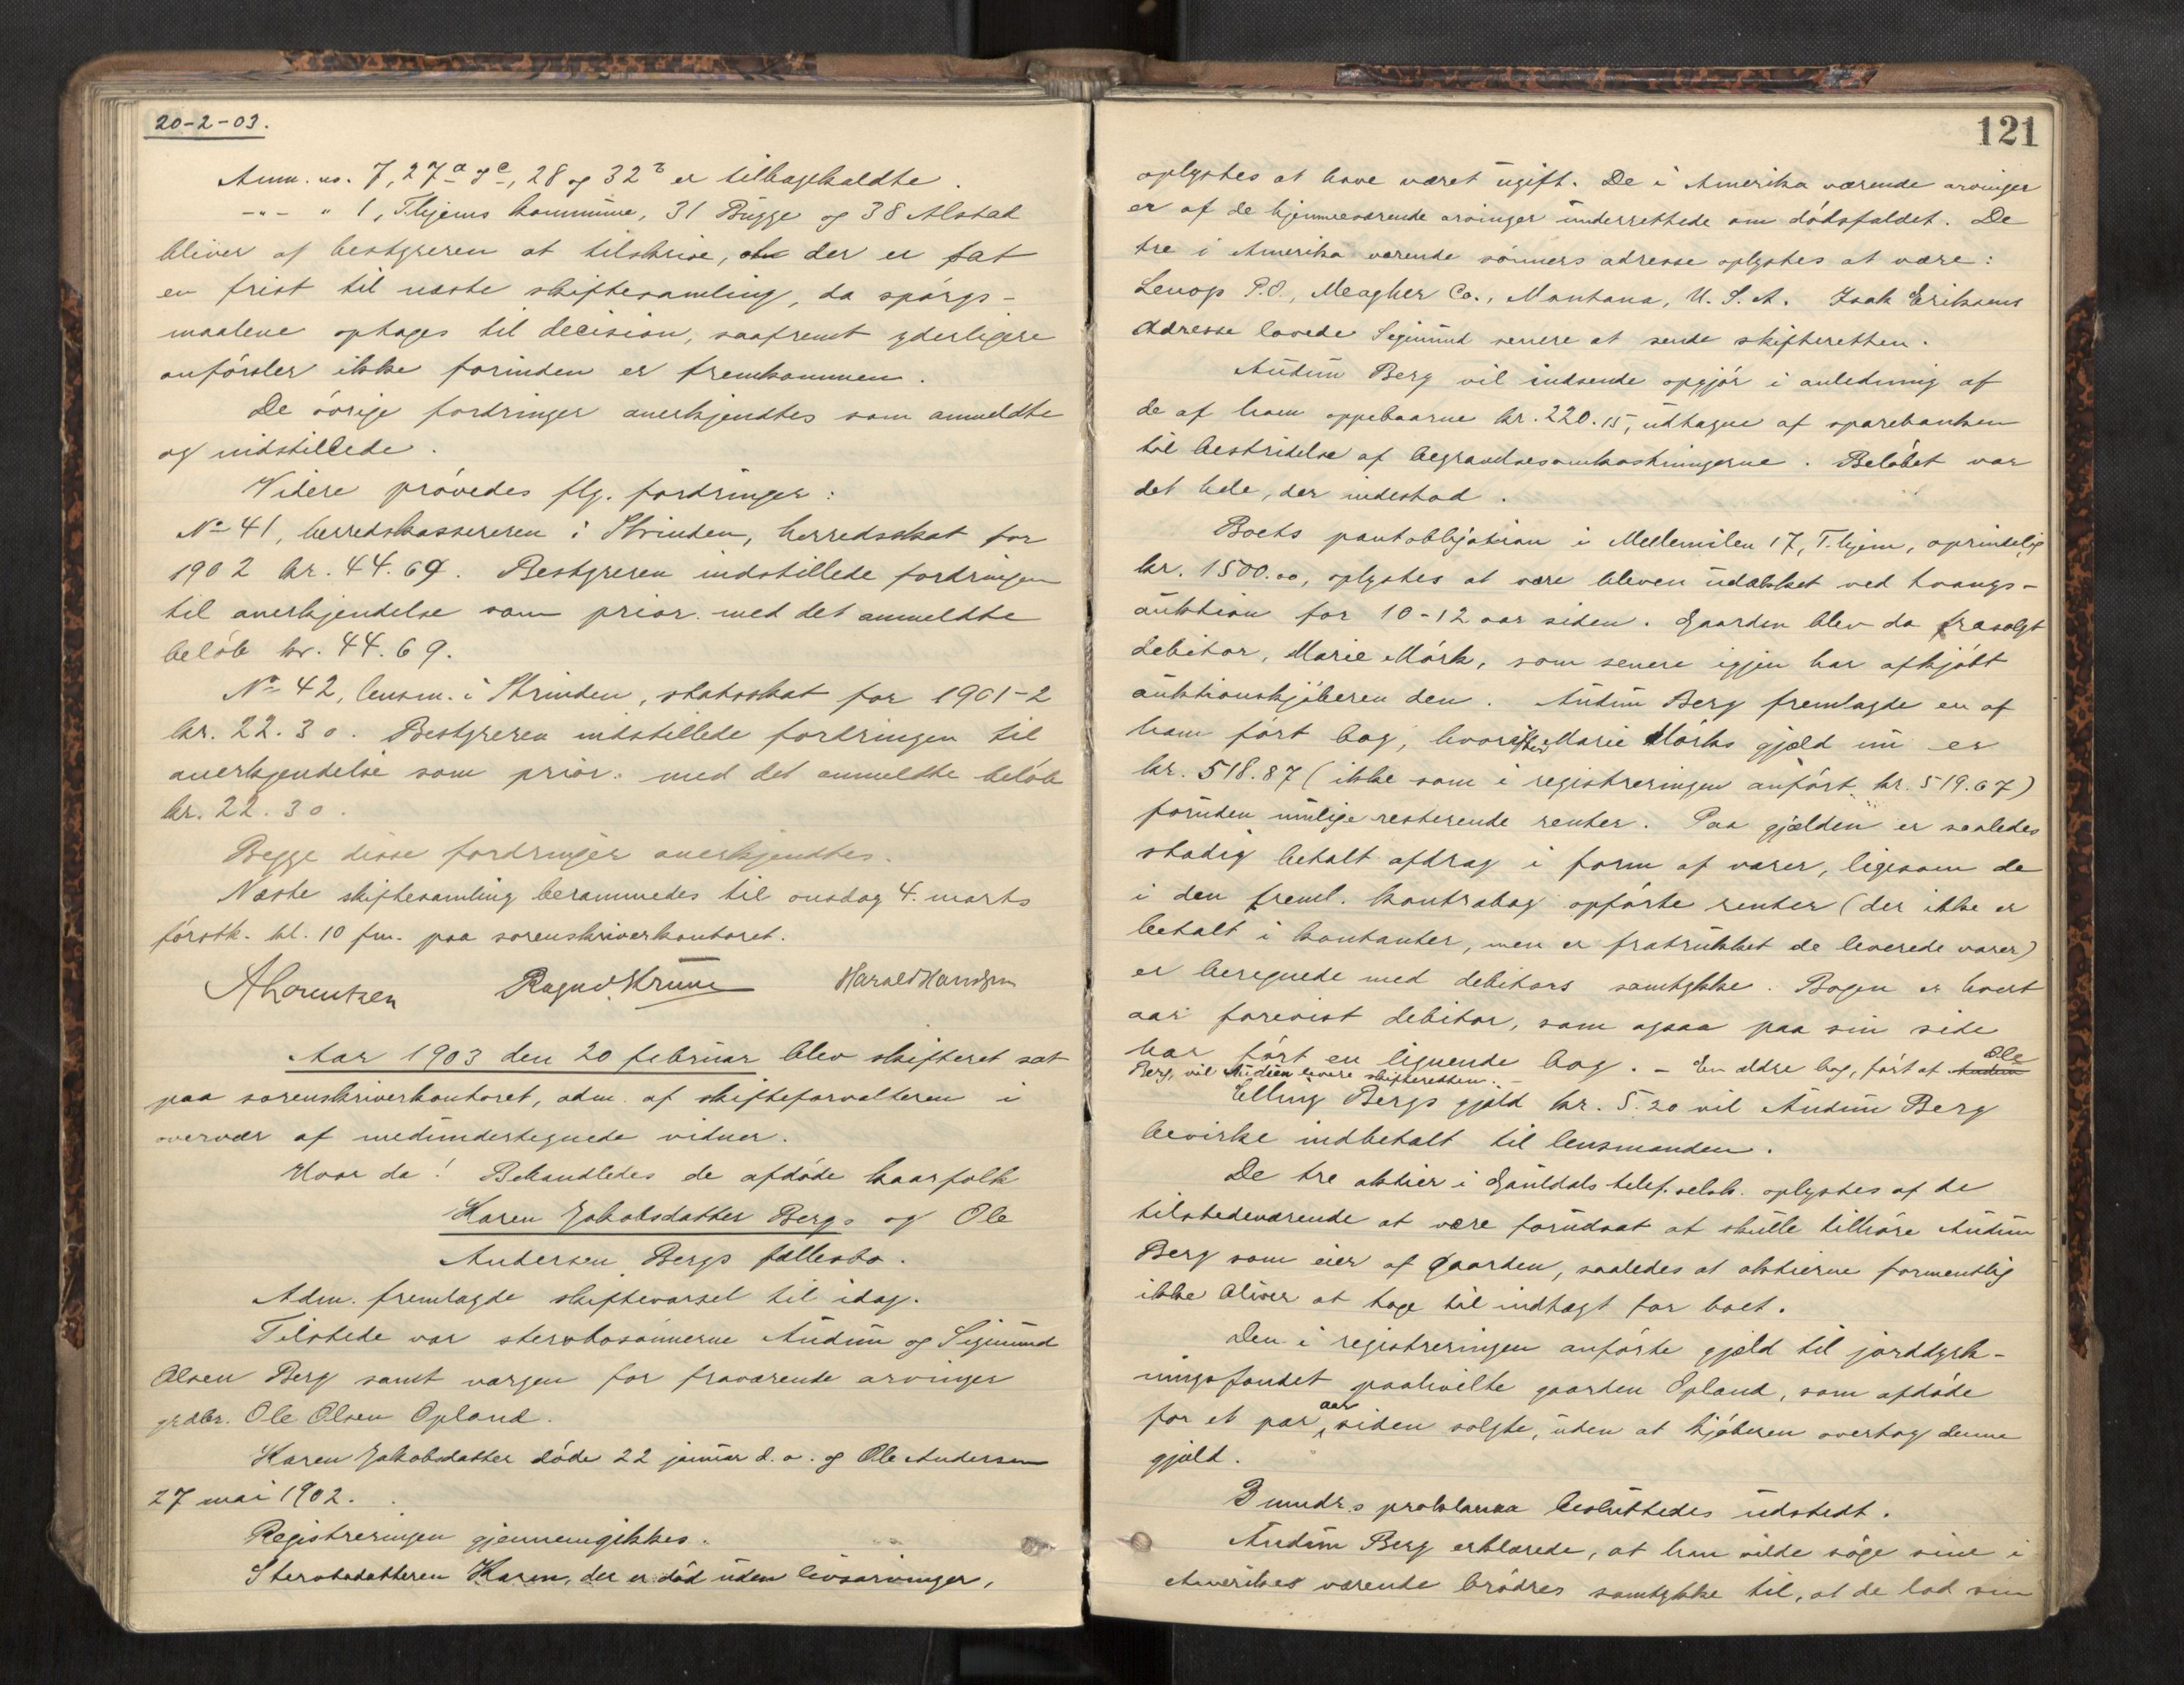 20-2-03.
Anm. no. 7, 27a og c, 28 og 32b er tilbagekaldte.
-"- " 1, T.hjems kommune, 31 Bugge og 38 Alstad
bliver af bestyreren at tilskrive, der er sat
en frist til næste skiftesamling, da spörgs-
maalene optages til decision, saafremt yderligere
anförsler ikke forinden er fremkommen.
De övrige fordringer anerkjendtes som anmeldte
og indstillede.
Videre prövedes flg. fordringer:
No 41, herredskassereren i Strinden, herredsskat for
1902 kr. 44.69. Bestyreren indstillede fordringen
til anerkjendelse som prior. med det anmeldte
belöb kr. 44.69.
No 42, lensm. i Strinden, statsskat for 1901-2
kr. 22.30. Bestyreren indstillede fordringen til
anerkjendelse som prior. med det anmeldte belöb
kr. 22.30.
Begge disse fordringer anerkjendtes.
Næste skiftesamling berammedes til onsdag 4. marts
förstk. kl. 10 fm. paa sorenskriverkontoret.
A Lorentzen Ragnv. Krune Harald Handsen
Aar 1903 den 20 februar blev skifteret sat
paa sorenskriverkontoret, adm. af skifteforvalteren i
overvær af medundertegnede vidner.
Hvor da! Behandledes de afdöde kaarfolk
Karen Jakobsdatter Bergs og Ole
Andersen Bergs fællesbo.
Adm. fremlagde skiftevarsel til idag.
Tilstede var stervbosönnerne Audun og Sigmund
Olsen Berg samt værgen for fraværende arvinger
grdbr. Ole Olsen Opland.
Karen Jakobsdatter döde 22 januar d.a. og Ole Andersen
27 mai 1902.
Registreringen gjennemgikkes.
Stervbodatteren Karen, der er död uden livsarvinger,
121
oplystes at have været ugift. De i Amerika værende arvinger
er af de hjemmeværende arvinger underrettede om dödsfaldet. De
tre i Amerika værende sönners adresse oplystes at være:
Lenop P.O., Meagher Co., Montana, U.S.A. Isak Eriksens
Adresse lovede Sigmund senere at sende skifteretten.
Audun Berg vil indsende opgjör i anledning af
de af ham oppebaarne kr. 220.15, udtagne af sparebanken
til bestridelse af begravelsesomkostningerne. Belöbet var
det hele, der indestod.
Boets pantobligation i Mellemilen 17, T.hjem, oprindelig
kr. 1500.00, oplystes at være bleven udelukket ved tvangs-
auktion for 10-12 aar siden. Gaarden blev da frasolgt
debitor, Marie Mörk, som senere igjen har afkjöbt
auktionskjöberen den. Audun Berg fremlagde en af
ham fört bog, hvorefter Marie Mörks gjæld nu er
kr. 518.87 (ikke som i registreringen anfört kr. 519.67)
foruden mulige resterende renter. Paa gjælden er saaledes
stadig betalt afdrag i form af varer, ligesom de
i den freml. kontrabog opförte renter (der ikke er
betalt i kontanter, men er fratrukket de leverede varer)
er beregnede med debitors samtykke. Bogen er hvert
aar forevist debitor, som ogsaa paa sin side
har fört en lignende bog. - En ældre bog, fört af Audun Ole
Berg, vil Audun levere skifteretten. -
Elling Bergs gjæld kr. 5.20 vil Audun Berg
bevirke indbetalt til lensmanden.
De tre aktier i Gauldals telef.selsk. oplystes af de
tilstedeværende at være forudsat at skulle tilhöre Audun
Berg som eier af gaarden, saaledes at aktierne formentlig
ikke bliver at tage til indtægt for boet.
Den i registreringen anförte gjæld til jorddyrk-
ningsfondet paahvilte gaarden Opland, som afdöde
for et par aar siden solgte, uden at kjöberen overtog denne
gjæld.
3 mndr.s proklama besluttedes udstedt.
Audun Berg erklærede, at han vilde söge sine i
Amerikas værende brödres samtykke til, at de lod sin